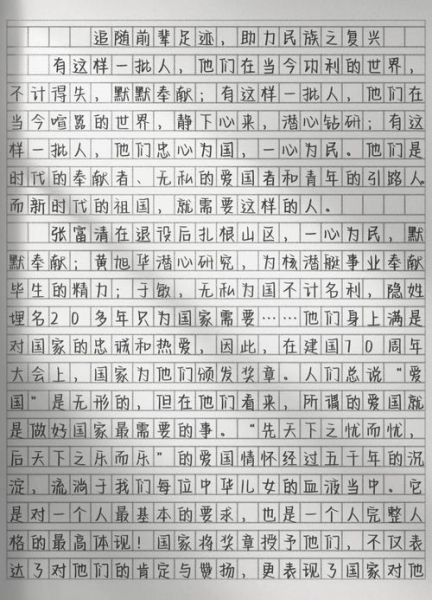 追随前辈足迹，助力民族之复兴
有这样一批人，他们在当今功利的世界，
不计得失，默默奉献；有这样一批人，他们在
当今喧嚣的世界，静下心来，潜心钻研；有这
样一批人，他们忠心为国，一心为民。他们是
时代的奉献者、无私的爱国者和青年的引路人。
而新时代的祖国，就需要这样的人。
张富清在退役后扎根山区，一心为民，默
默奉献；黄旭华潜心研究，为核潜艇事业奉献
毕生的精力；于敏，无私为国不计名利，隐姓
埋名20多年只为国家需要……他们身上满是
对国家的忠诚和热爱，因此，在建国70周年
大会上，国家为他们颁发奖章。人们总说“爱
国”是无形的，但在他们看来，所谓的爱国就
是做好国家最需要的事。“先天下之忧而忧，
后天下之乐而乐”的爱国情怀经过五千年的沉
淀，流淌于我们每位中华儿女的血液当中。它
是对一个人最基本的要求，也是一个人完整人
格的最高体现！国家将奖章授予他们，不仅表
达了对他们的肯定与赞扬，更表现了国家对他